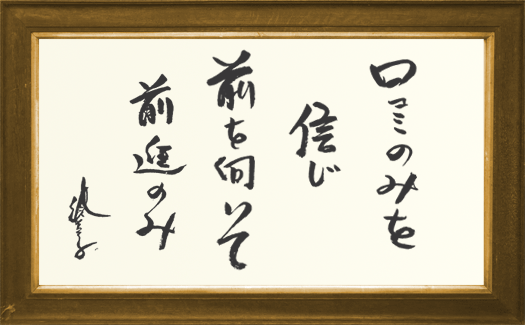 口コミのみを
信じ
前を向いて
前進のみ